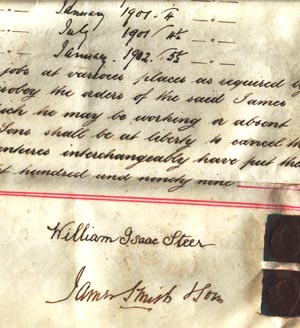 January 1901 / 4
July 1901 / 4½
January 1902. / 5½
jobs at various places as required by
sobey the orders of the said James
ich he may be working or absent
Sons shall be at liberty to cancel th
entures interchangeably have put the
t hundred and ninety nine
William Isaac Steer
James Smith & Son